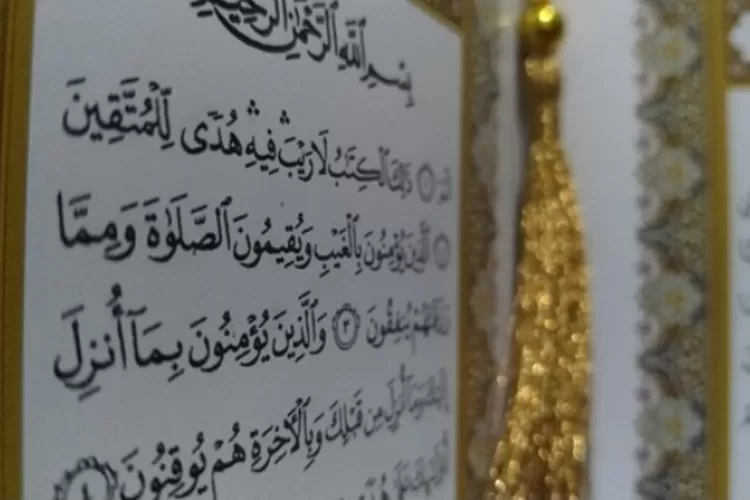 بِسْمِ ٱللَّهِ ٱلرَّحْمَٰنِ ٱلرَّحِيمِ
ذَٰلِكَ ٱلْكِتَٰبُ لَا رَيْبَ ۛ فِيهِ ۛ هُدًى لِّلْمُتَّقِينَ
ٱلَّذِينَ يُؤْمِنُونَ بِٱلْغَيْبِ وَيُقِيمُونَ ٱلصَّلَوٰةَ وَمِمَّا
رَزَقْنَٰهُمْ يُنفِقُونَ ٣ وَٱلَّذِينَ يُؤْمِنُونَ بِمَآ أُنزِلَ
إِلَيْكَ وَمَآ أُنزِلَ مِن قَبْلِكَ وَبِٱلْأَخِرَةِ هُمْ يُوقِنُونَ ٤